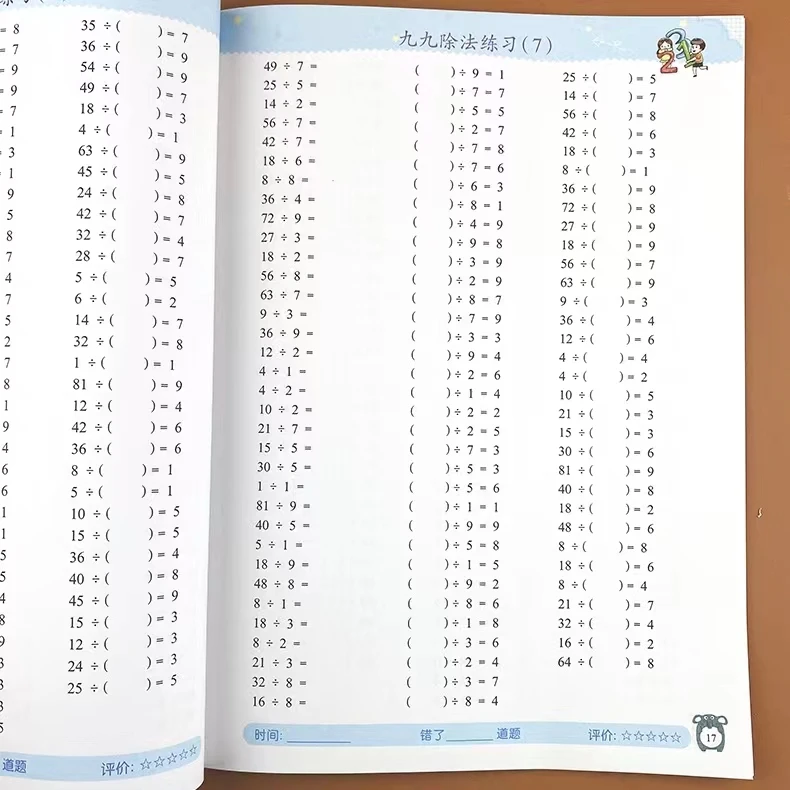 35 ÷ ( ) = 7
36 ÷ ( ) = 9
54 ÷ ( ) = 9
49 ÷ ( ) = 7
18 ÷ ( ) = 3
4 ÷ ( ) = 1
63 ÷ ( ) = 9
45 ÷ ( ) = 5
24 ÷ ( ) = 8
42 ÷ ( ) = 7
32 ÷ ( ) = 4
28 ÷ ( ) = 7
5 ÷ ( ) = 5
6 ÷ ( ) = 2
14 ÷ ( ) = 7
32 ÷ ( ) = 8
1 ÷ ( ) = 1
81 ÷ ( ) = 9
12 ÷ ( ) = 4
42 ÷ ( ) = 6
36 ÷ ( ) = 6
8 ÷ ( ) = 1
5 ÷ ( ) = 1
10 ÷ ( ) = 5
15 ÷ ( ) = 5
36 ÷ ( ) = 4
40 ÷ ( ) = 8
45 ÷ ( ) = 9
15 ÷ ( ) = 3
12 ÷ ( ) = 3
24 ÷ ( ) = 3
25 ÷ ( ) = 5
道题 评价: ☆☆☆☆☆
九九除法练习(7)
49 ÷ 7 =
25 ÷ 5 =
14 ÷ 2 =
56 ÷ 7 =
42 ÷ 7 =
18 ÷ 6 =
8 ÷ 8 =
36 ÷ 4 =
72 ÷ 9 =
27 ÷ 3 =
18 ÷ 2 =
56 ÷ 8 =
63 ÷ 7 =
9 ÷ 3 =
36 ÷ 9 =
12 ÷ 2 =
4 ÷ 1 =
4 ÷ 2 =
10 ÷ 2 =
21 ÷ 7 =
15 ÷ 5 =
30 ÷ 5 =
1 ÷ 1 =
81 ÷ 9 =
40 ÷ 5 =
5 ÷ 1 =
18 ÷ 9 =
48 ÷ 8 =
8 ÷ 1 =
18 ÷ 3 =
8 ÷ 2 =
21 ÷ 3 =
32 ÷ 8 =
16 ÷ 8 =
( ) ÷ 9 = 1
( ) ÷ 7 = 7
( ) ÷ 5 = 5
( ) ÷ 2 = 7
( ) ÷ 7 = 8
( ) ÷ 7 = 6
( ) ÷ 6 = 3
( ) ÷ 8 = 1
( ) ÷ 4 = 9
( ) ÷ 9 = 8
( ) ÷ 3 = 9
( ) ÷ 2 = 9
( ) ÷ 8 = 7
( ) ÷ 7 = 9
( ) ÷ 3 = 3
( ) ÷ 9 = 4
( ) ÷ 2 = 6
( ) ÷ 1 = 4
( ) ÷ 2 = 2
( ) ÷ 2 = 5
( ) ÷ 7 = 3
( ) ÷ 5 = 3
( ) ÷ 5 = 6
( ) ÷ 1 = 1
( ) ÷ 9 = 9
( ) ÷ 5 = 8
( ) ÷ 1 = 5
( ) ÷ 9 = 2
( ) ÷ 8 = 6
( ) ÷ 1 = 8
( ) ÷ 3 = 6
( ) ÷ 2 = 4
( ) ÷ 3 = 7
( ) ÷ 8 = 4
25 ÷ ( ) = 5
14 ÷ ( ) = 7
56 ÷ ( ) = 8
42 ÷ ( ) = 6
18 ÷ ( ) = 3
8 ÷ ( ) = 1
36 ÷ ( ) = 9
72 ÷ ( ) = 8
27 ÷ ( ) = 9
18 ÷ ( ) = 9
56 ÷ ( ) = 7
63 ÷ ( ) = 9
9 ÷ ( ) = 3
36 ÷ ( ) = 4
12 ÷ ( ) = 6
4 ÷ ( ) = 4
4 ÷ ( ) = 2
10 ÷ ( ) = 5
21 ÷ ( ) = 3
15 ÷ ( ) = 3
30 ÷ ( ) = 6
81 ÷ ( ) = 9
40 ÷ ( ) = 8
18 ÷ ( ) = 2
48 ÷ ( ) = 6
8 ÷ ( ) = 8
18 ÷ ( ) = 6
8 ÷ ( ) = 4
21 ÷ ( ) = 7
32 ÷ ( ) = 4
16 ÷ ( ) = 2
64 ÷ ( ) = 8
时间: ________ 错了______道题 评价: ☆☆☆☆☆
17